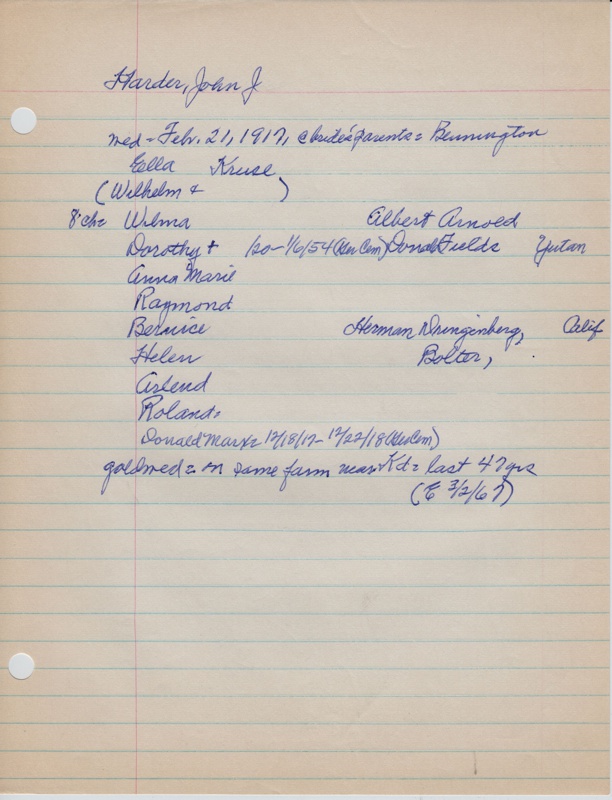 Harder, John J
wed = Feb. 21, 1917, @ bride's parents = Bennington
Ella Kruse
(Wilhelm + )
8 ch = Wilma Albert Arnold
Dorothy + - 1/6/54 ( Cem) Donald Fields Yutan
Anna Marie
Raymond
Bernice Herman Dringenberg, Calif
Helen Bolter,
Arlend
Roland =
Donald Marx = 12/18/17 - 12/22/18 ( Cem)
gold wed = on same farm near Kd = last 47 yrs
(E 3/2/67)